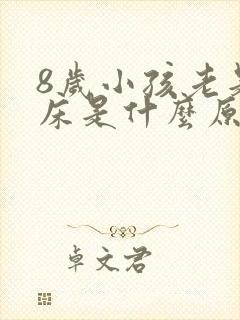 8歲小孩老是
床是什麼原
卓文君